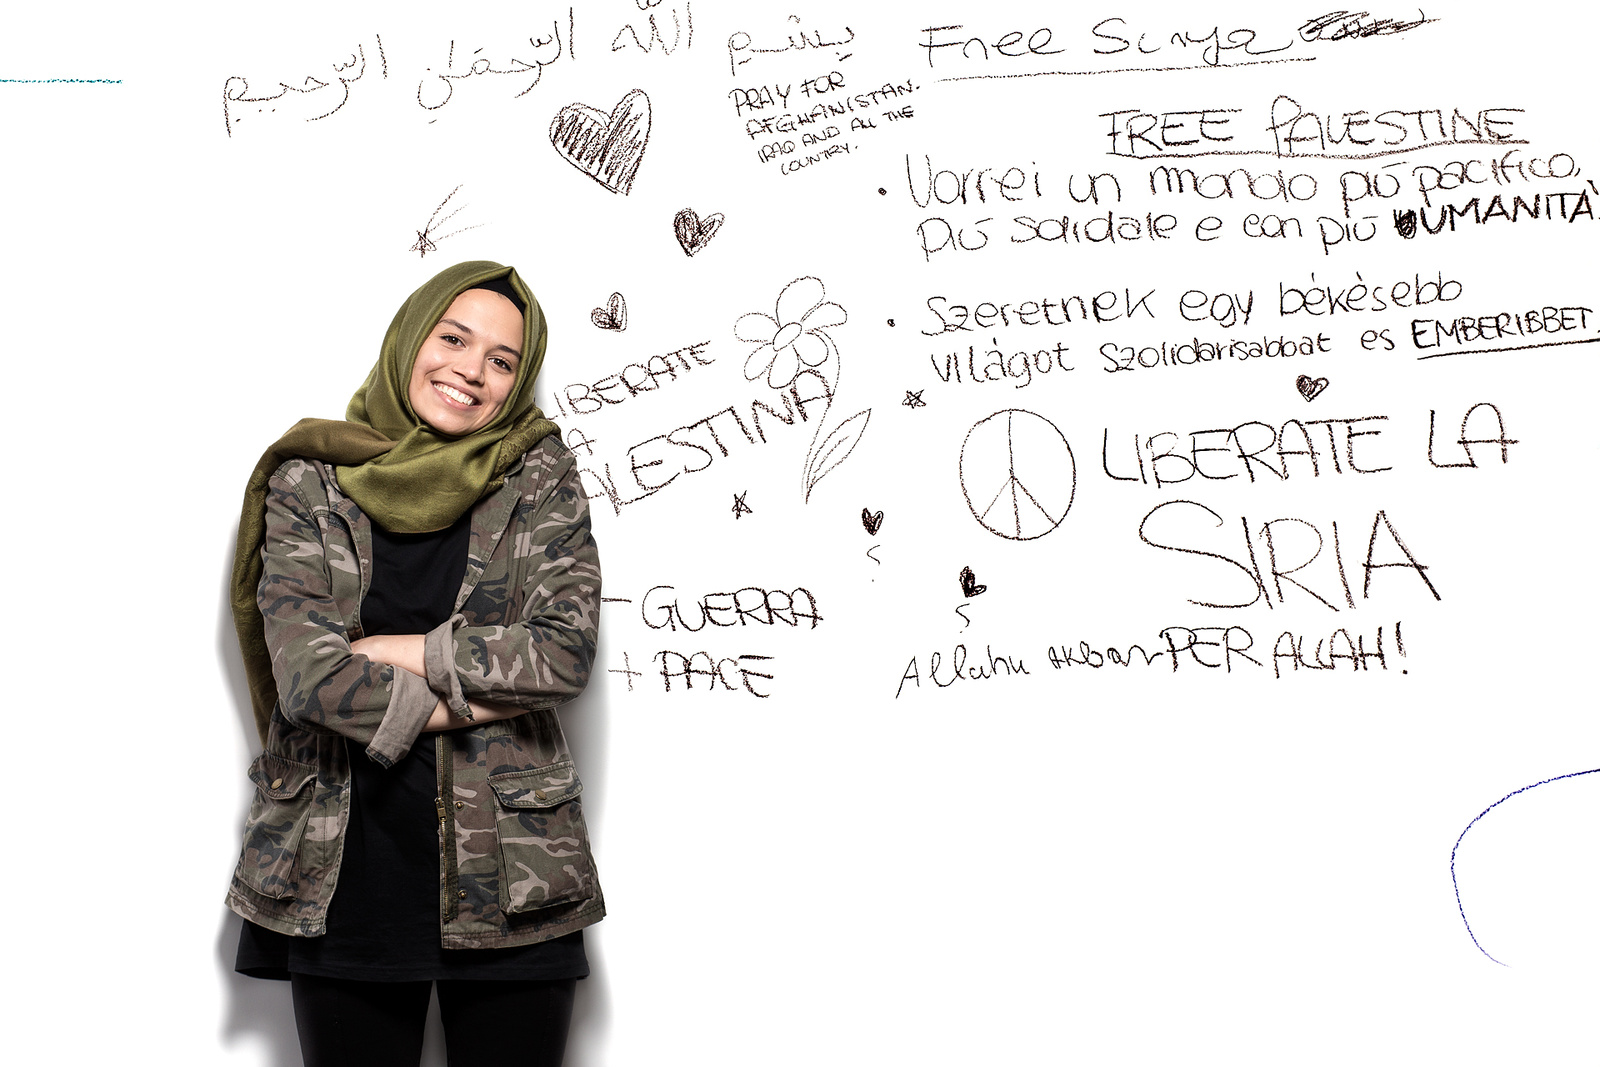 بِسْمِ اللّٰه الرَّحْمٰن الرَّحيم
Free Surya
PRAY FOR
AFGHANISTAN.
IRAQ AND ALL THE
COUNTRY.
FREE PALESTINE
• Vorrei un mondo più pacifico,
più solidale e con più UMANITÀ.
• Szeretnék egy békèsebb
világot szolidarisabbat es EMBERIBBET.
LIBERATE
LA
PALESTINA
LIBERATE LA
SIRIA
- GUERRA
+ PACE
Allahu akbar PER ALLAH!